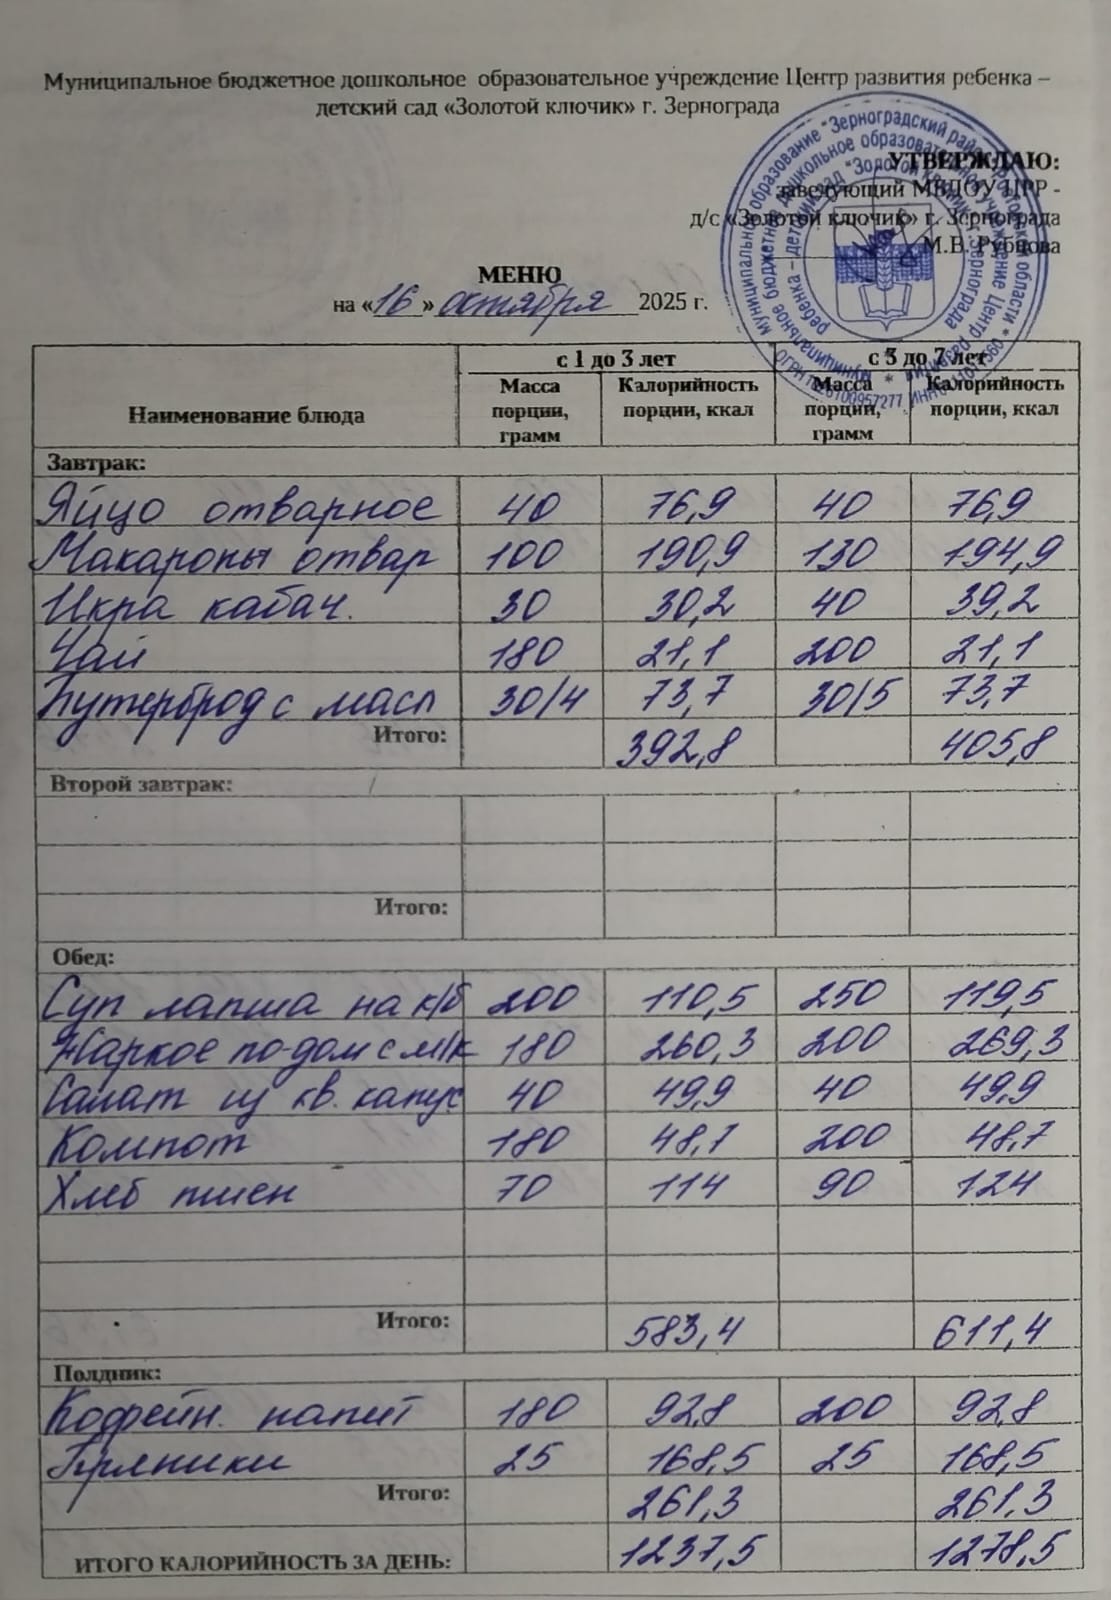 Муниципальное бюджетное дошкольное образовательное учреждение Центр развития ребенка –
детский сад «Золотой ключик» г. Зернограда
УТВЕРЖДАЮ:
заведующий МБДОУ ЦРР -
д/с «Золотой ключик» г. Зернограда
М.В. Рубцова
МЕНЮ
на «16» октября 2025 г.
Наименование блюда с 1 до 3 лет с 3 до 7 лет
Масса порции, грамм Калорийность порции, ккал Масса порции, грамм Калорийность порции, ккал
Завтрак:
Яйцо отварное 40 76,9 40 76,9
Макароны отвар 100 190,9 130 194,9
Икра кабач. 30 30,2 40 39,2
Чай 180 21,1 200 21,1
Бутерброд с масл 30/4 73,7 30/5 73,7
Итого: 392,8 405,8
Второй завтрак:
Итого:
Обед:
Суп лапша на к/б 200 110,5 250 119,5
Жаркое по-дом с м/к 180 260,3 200 269,3
Салат из кв. капус 40 49,9 40 49,9
Компот 180 48,7 200 48,7
Хлеб пшен 70 114 90 124
Итого: 583,4 611,4
Полдник:
Кофейн. напит 180 92,8 200 92,8
Пряники 25 168,5 25 168,5
Итого: 261,3 261,3
ИТОГО КАЛОРИЙНОСТЬ ЗА ДЕНЬ: 1237,5 1278,5